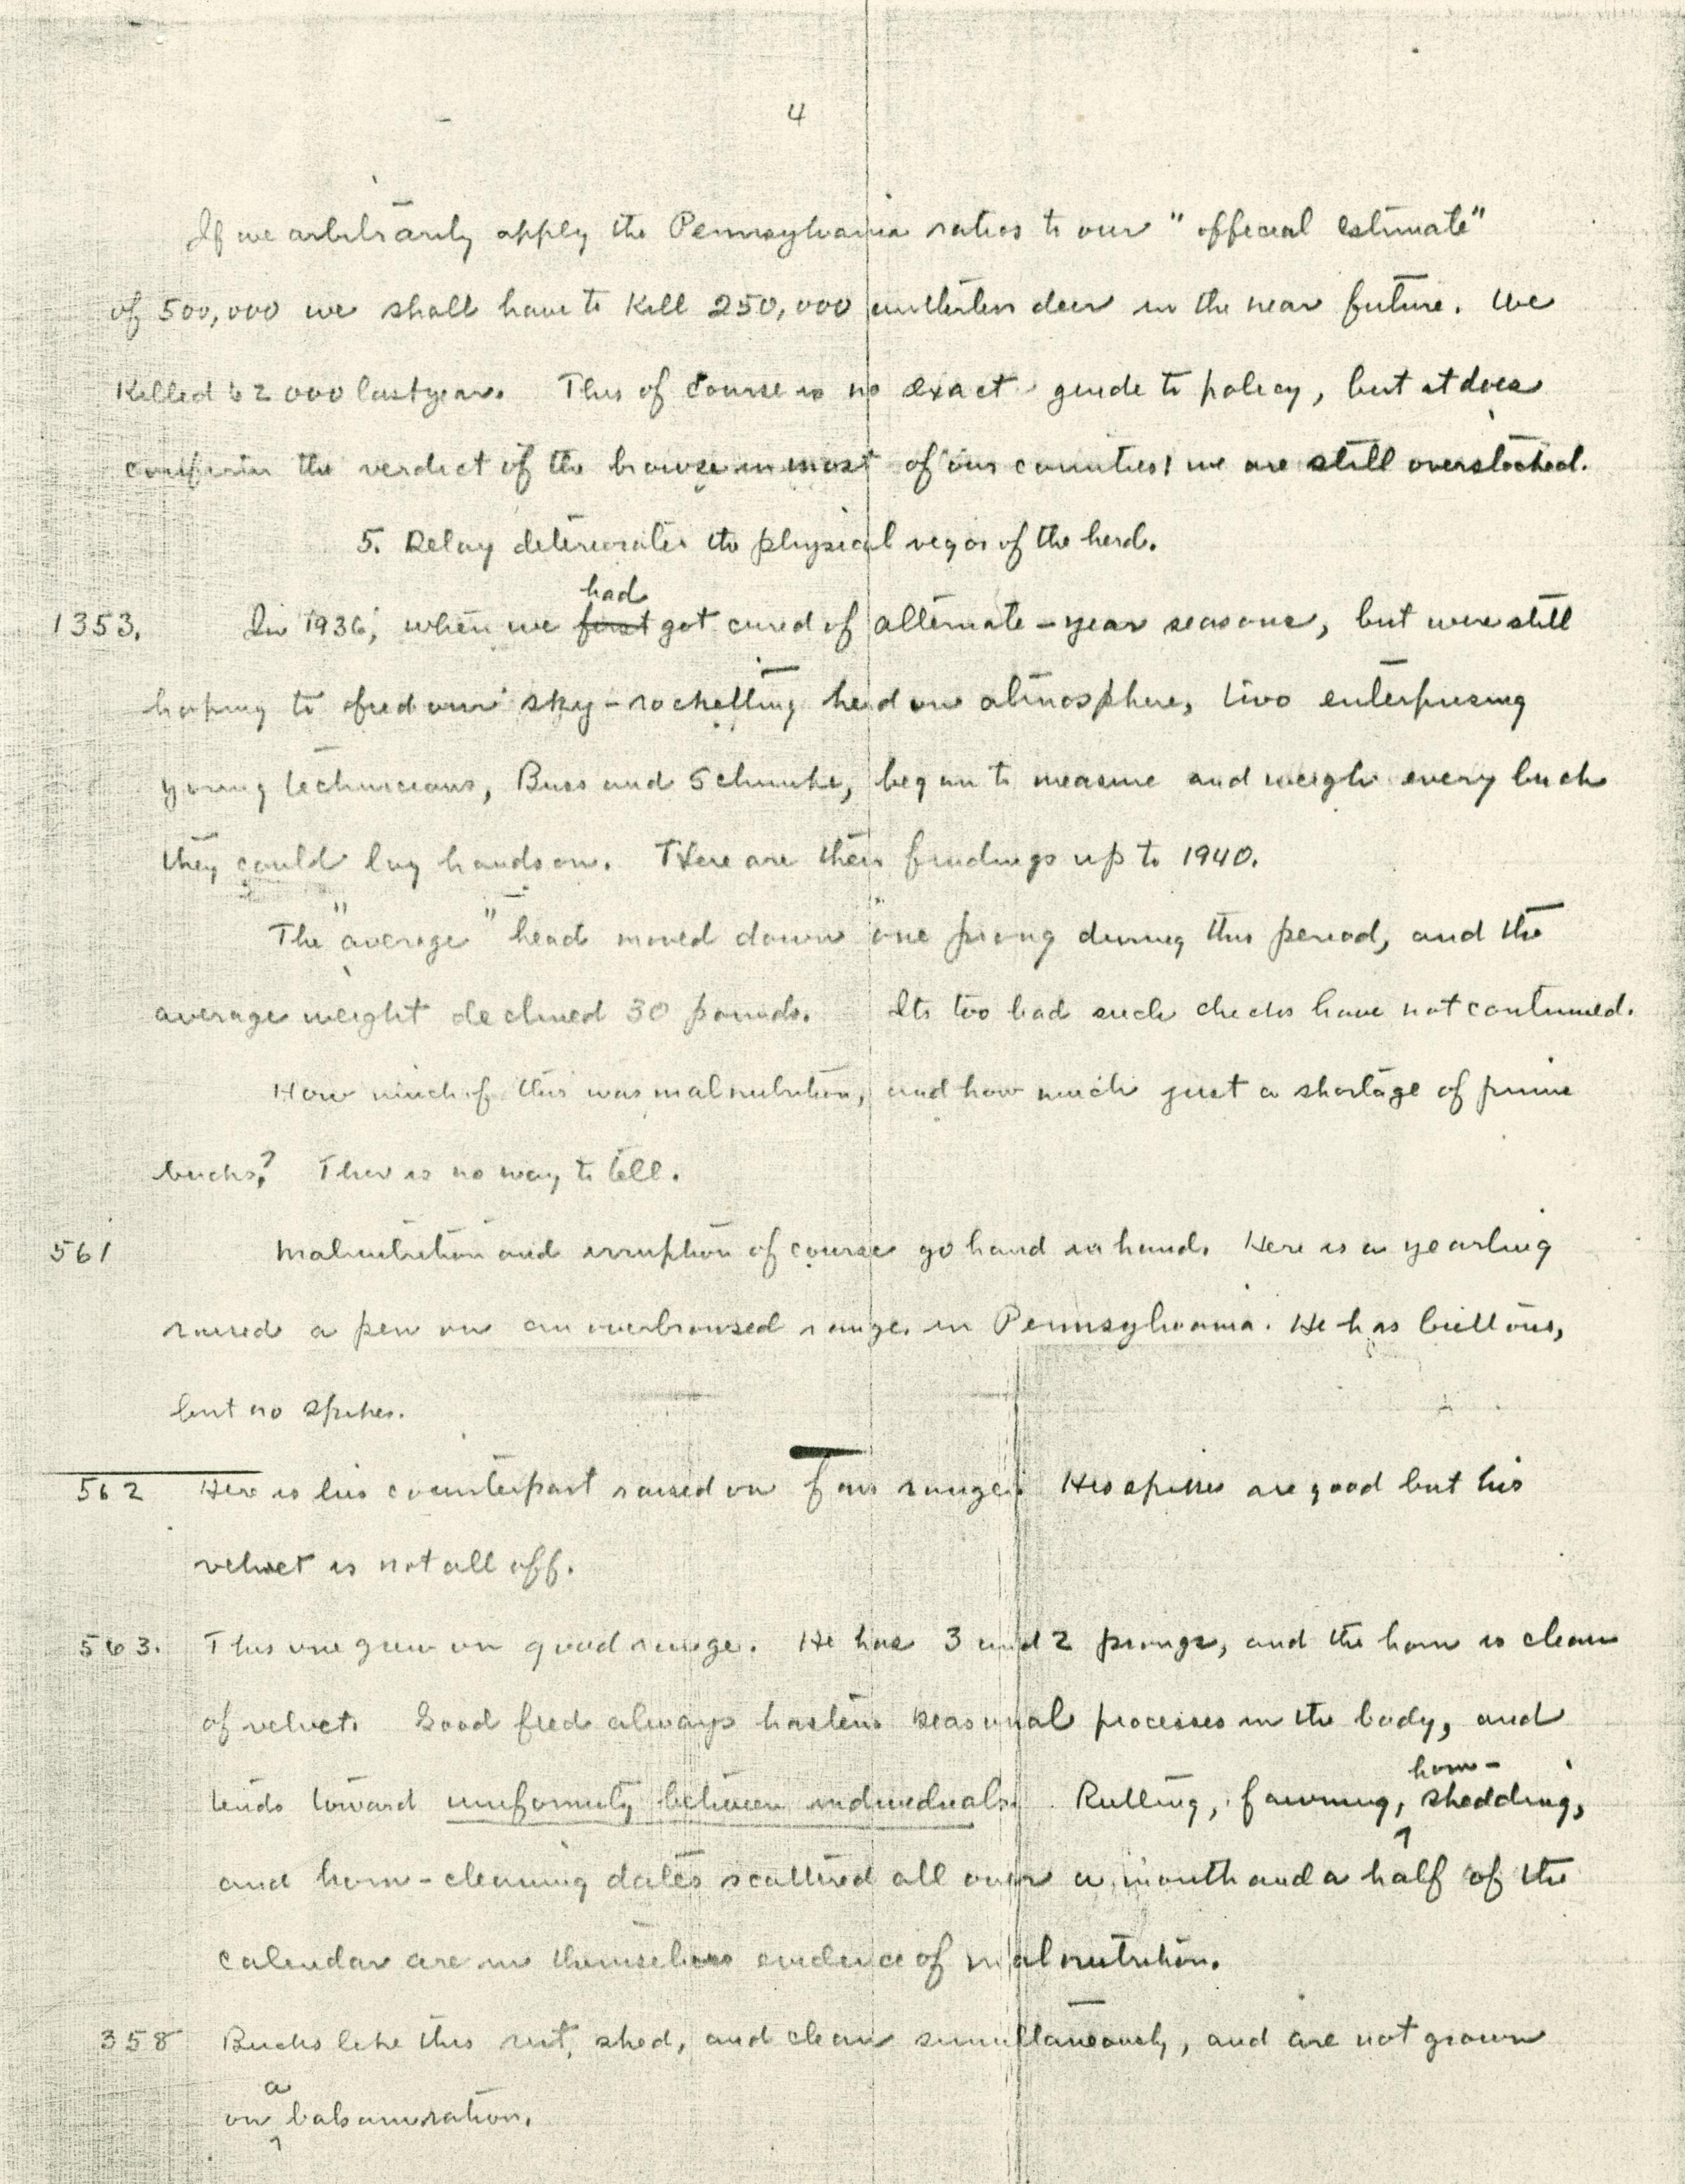 4
If we arbitrarily apply the Pennsylvania ratios to our "official estimate"
of 500,000 we shall have to kill 250,000 antlerless deer in the near future. We
killed 62000 last year. This of course is no exact guide to policy, but it does
confirm the verdict of the browse in most of our counties: we are still overstocked.
5. Delay deteriorates the physical vigor of the herd.
had
1353. In 1936, when we first got cured of alternate-year seasons, but were still
hoping to feed our sky-rocketting herd on atmosphere, two enterprising
young technicians, Buss and Schunke, began to measure and weigh every buck
they could lay hands on. Here are their findings up to 1940.
The "average" head moved down one prong during this period, and the
average weight declined 30 pounds. Its too bad such checks have not continued.
How much of this was malnutrition, and how much just a shortage of prime
bucks? There is no way to tell.
561 Malnutrition and irruption of course go hand in hand. Here is a yearling
raised a pen on an overbrowsed range in Pennsylvania. He has buttons,
but no spikes.
562 Here is his counterpart raised on fair range. His spikes are good but his
velvet is not all off.
563. This one grew on good range. He has 3 and 2 prongs, and the horn is clean
of velvet. Good feed always hastens seasonal processes in the body, and
horn-
tends toward uniformity between individuals. Rutting, fawning, shedding,
and horn-cleaning dates scattered all over a month and a half of the
calendar are in themselves evidence of malnutrition.
358 Bucks like this rut, shed, and clean simultaneously, and are not grown
a
on balsam ration.